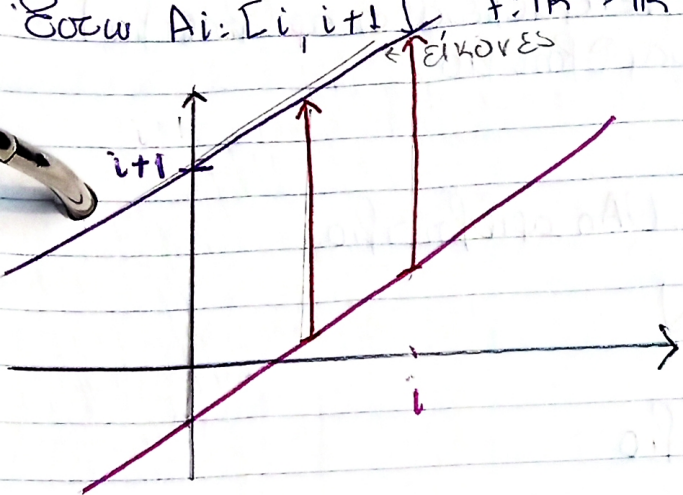 Έστω Ai: [i, i+1] f: ℝ → ℝ
← εἰκονες
i+1
i